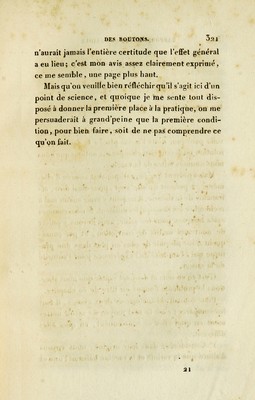 DES BOUTONS. 321
n'aurait jamais l'entière certitude que l'effet général
a eu lieu; c'est mon avis assez clairement exprimé,
ce me semble, une page plus haut.
Mais qu'on veuille bien réfléchir qu'il s'agit ici d'un
point de science, et quoique je me sente tout dis-
posé à donner la première place à la pratique, on me
persuaderait à grand'peine que la première condi-
tion, pour bien faire, soit de ne pas comprendre ce
qu'on fait.
21